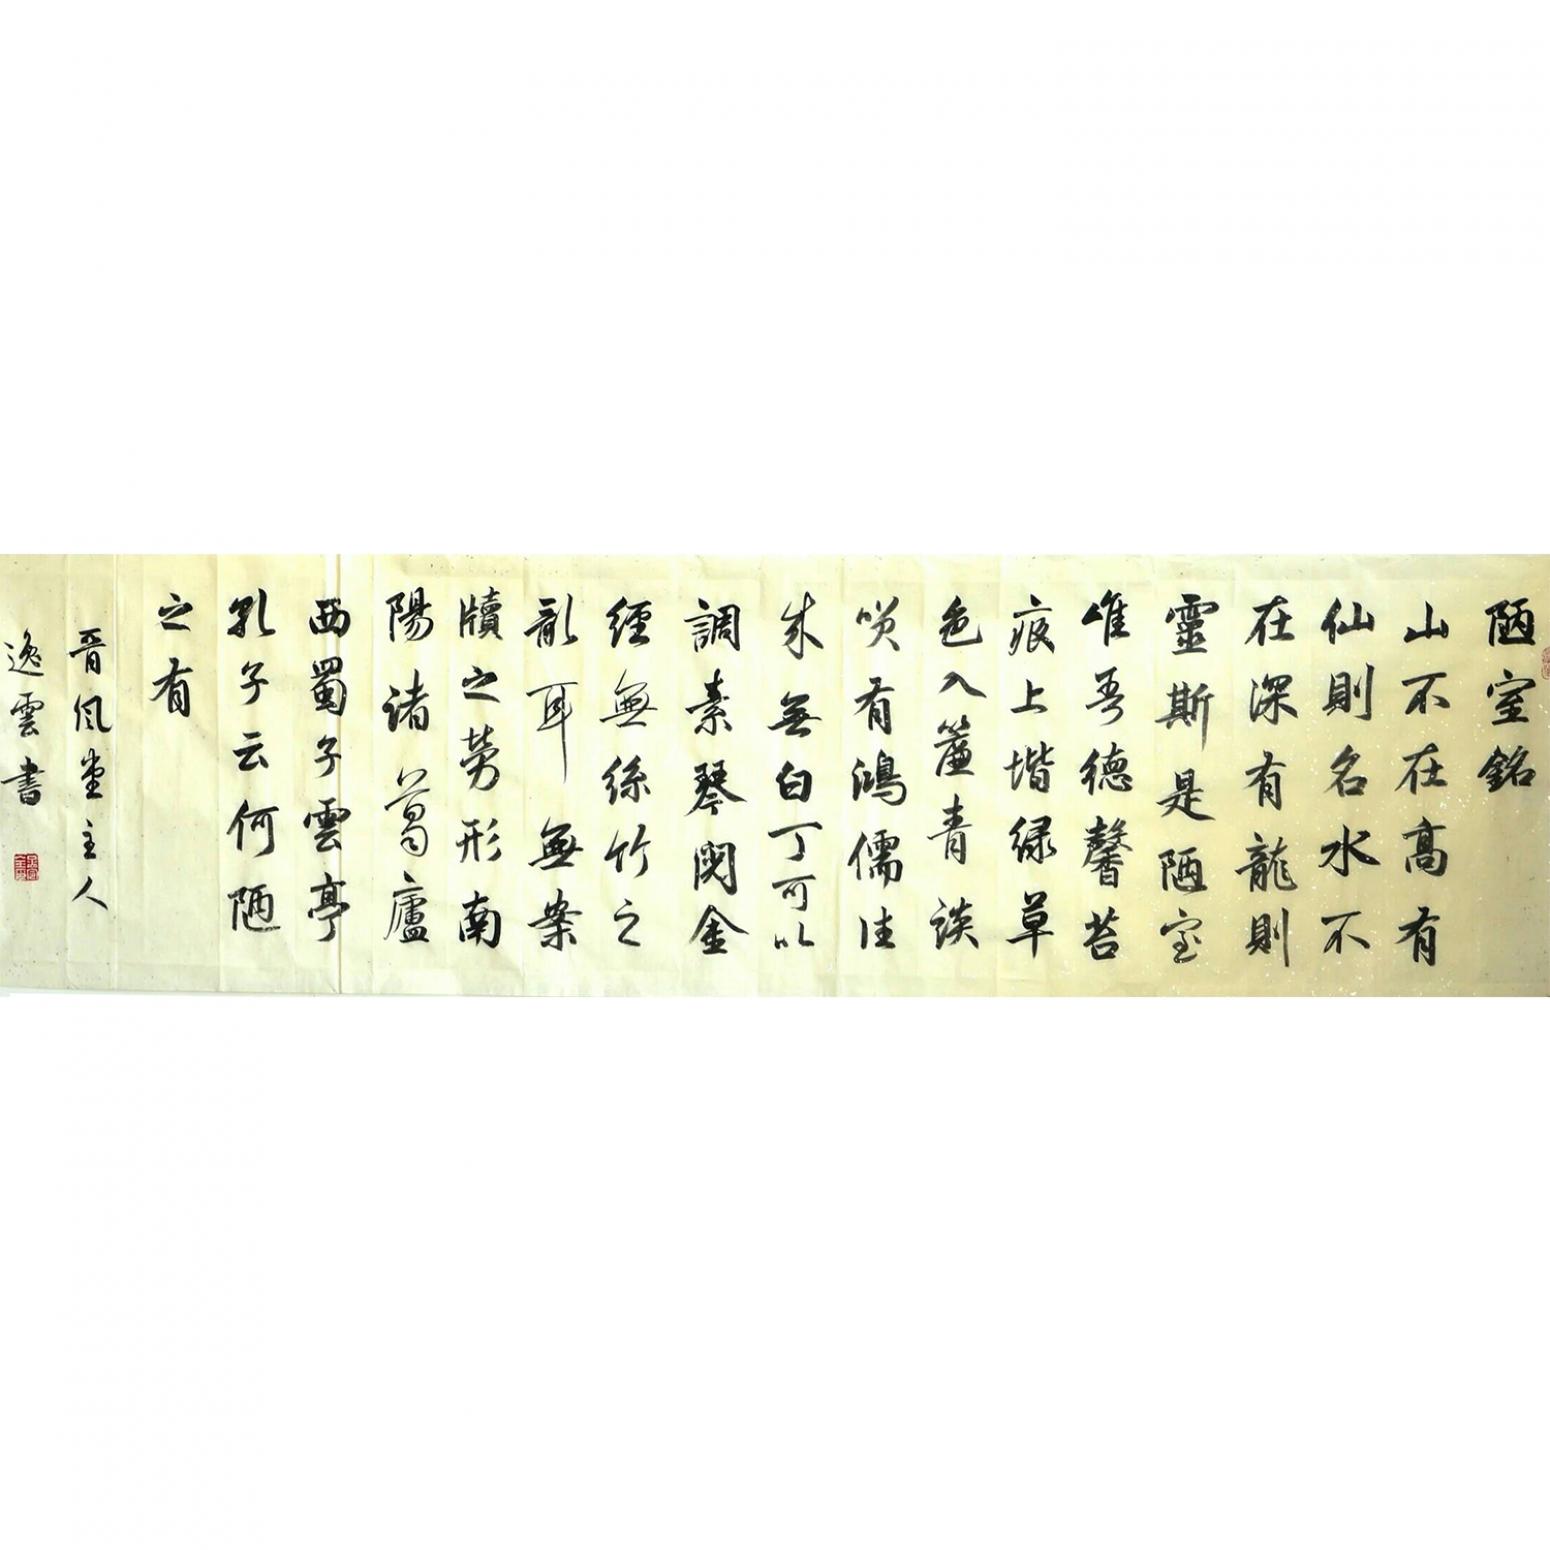 陋室銘
山不在高有
仙則名水不
在深有龍則
靈斯是陋室
唯吾德馨苔
痕上堦緑草
色入簾青談
咲有鴻儒往
来無白丁可以
調素琴閱金
經無絲竹之
亂耳無案
牘之勞形南
陽諸葛廬
西蜀子雲亭
孔子云何陋
之有
晉風堂主人
逸雲書